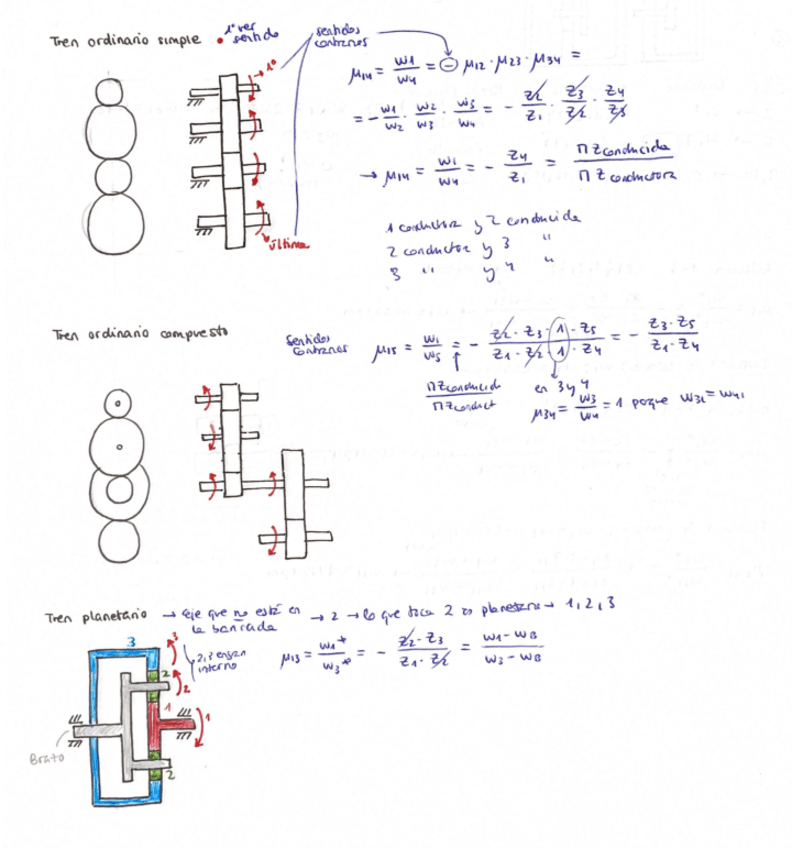 Tren ordinario simple
1º ver sentido
sentidos contrarios
1º
última
μ14 = w1/w4 = ⊖ μ12 · μ23 · μ34 =
= - w1/w2 · w2/w3 · w3/w4 = - Z2/Z1 · Z3/Z2 · Z4/Z3
→ μ14 = w1/w4 = - Z4/Z1 = Π Z conducida / Π Z conductora
1 conductora y 2 conducida
2 conductora y 3 "
3 " y 4 "
Tren ordinario compuesto
sentidos contrarios
μ15 = w1/w5 = - Z2 · Z3 · 1 · Z5 / Z1 · Z2 · 1 · Z4 = - Z3 · Z5 / Z1 · Z4
Π Z conducid / Π Z conduct
en 3 y 4
μ34 = w3/w4 = 1 porque w31 = w41
Tren planetario → eje que no está en la bancada → 2 → lo que toca 2 es planetario → 1, 2, 3
2,3 engran interno
μ13 = w1*/w3* = - Z2 · Z3 / Z1 · Z2 = w1 - wB / w3 - wB
3
3
2
2
1
1
2
Brazo